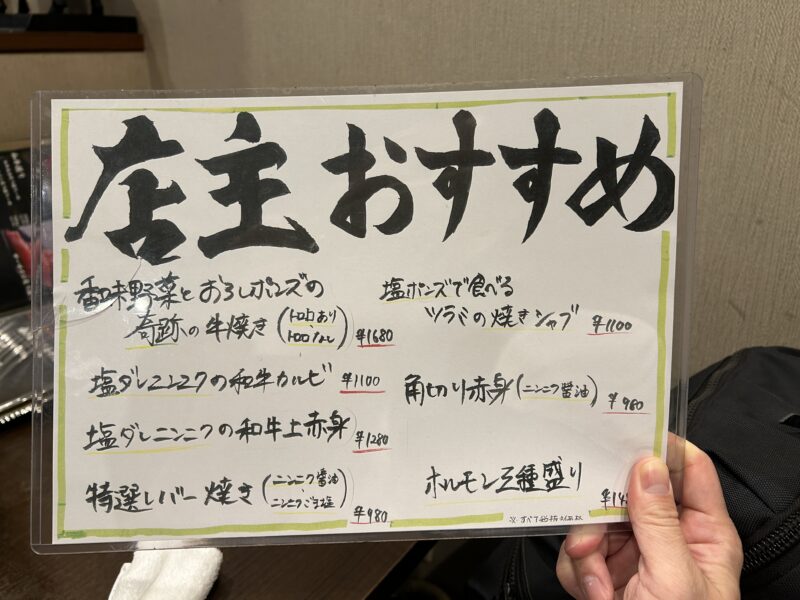 店主おすすめ
香味野菜とおろしポンズの
奇跡の牛焼き(トロロあり・トロロなし) ¥1680
塩ダレニンニクの和牛カルビ ¥1100
塩ダレニンニクの和牛上赤身 ¥1280
特選レバー焼き(ニンニク醤油・ニンニクごま塩) ¥980
塩ポンズで食べる
ツラミの焼きシャブ ¥1100
角切り赤身(ニンニク醤油) ¥980
ホルモン三種盛り
※すべて